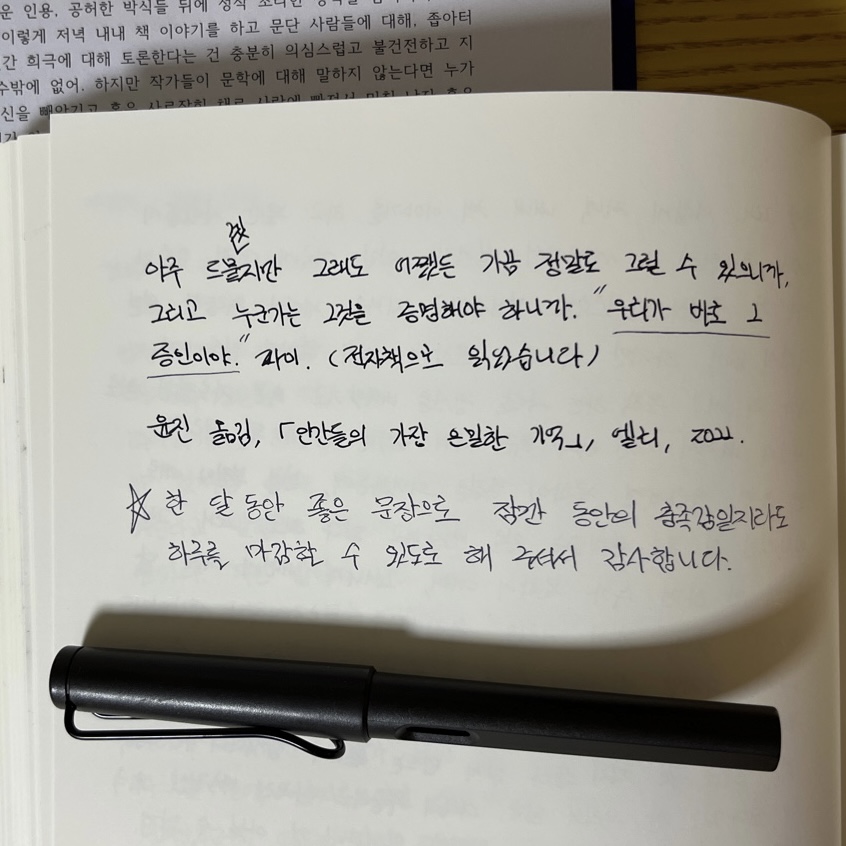 운 인용, 공허한 박식들 뒤에 정작 초라한
이렇게 저녁 내내 책 이야기를 하고 문단 사람들에 대해, 좀아터
간 희극에 대해 토론한다는 건 충분히 의심스럽고 불건전하고 지
수밖에 없어. 하지만 작가들이 문학에 대해 말하지 않는다면 누가
신을 빼앗기고 혼을 사로잡힌 채로 사랑에 빠져서
아주 드물지만 그래도 어쨌든 가끔 정말로 그럴 수 있으니까,
그리고 누군가는 그것을 증명해야 하니까. "우리가 바로 그
증인이야." 파이. (전자책으로 읽었습니다)
윤진 옮김, 「인간들의 가장 은밀한 기억」, 엘리, 2022.
☆ 한 달 동안 좋은 문장으로 잠깐 동안의 충족감일지라도
하루를 마감할 수 있도록 해 주셔서 감사합니다.